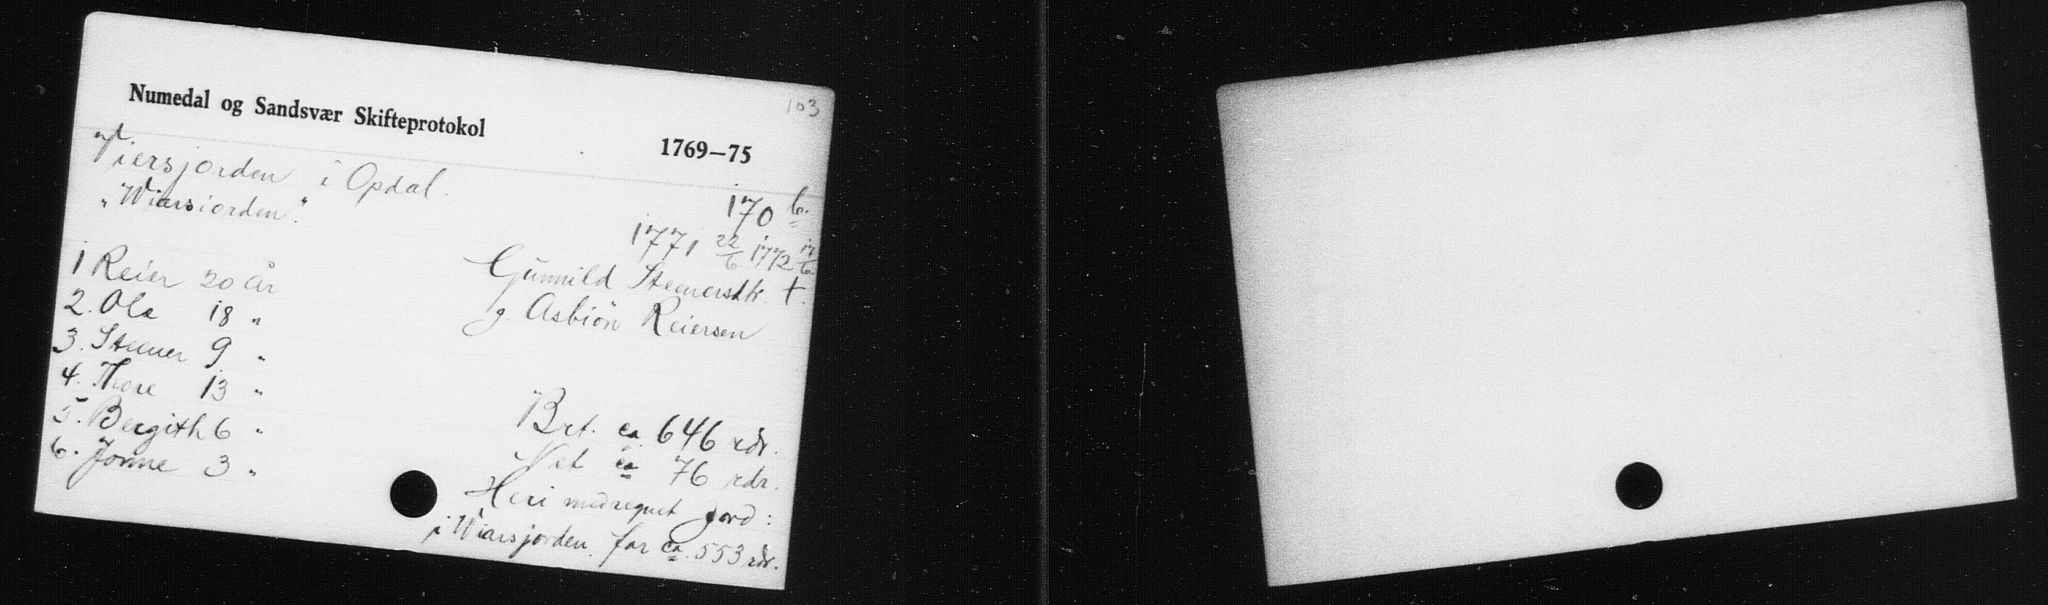 103
Numedal og Sandsvær Skifteprotokol
1769—75
Viersjorden i Opdal.
170 b.
"Wiarsiorden".
1771 22/6 1772 17/6.
Gunnild Stenersdtr. †.
g. Asbiön Reiersen
1 Reier 20 år
2. Ola 18 "
3. Stener 9 "
4. Thore 13 "
5. Bergith 6 "
6. Jorine 3 "
Brt. ca 646 rdr.
Net ca 76 rdr.
Heri medregnet jord:
i Wiarsjorden for ca. 553 rdr.